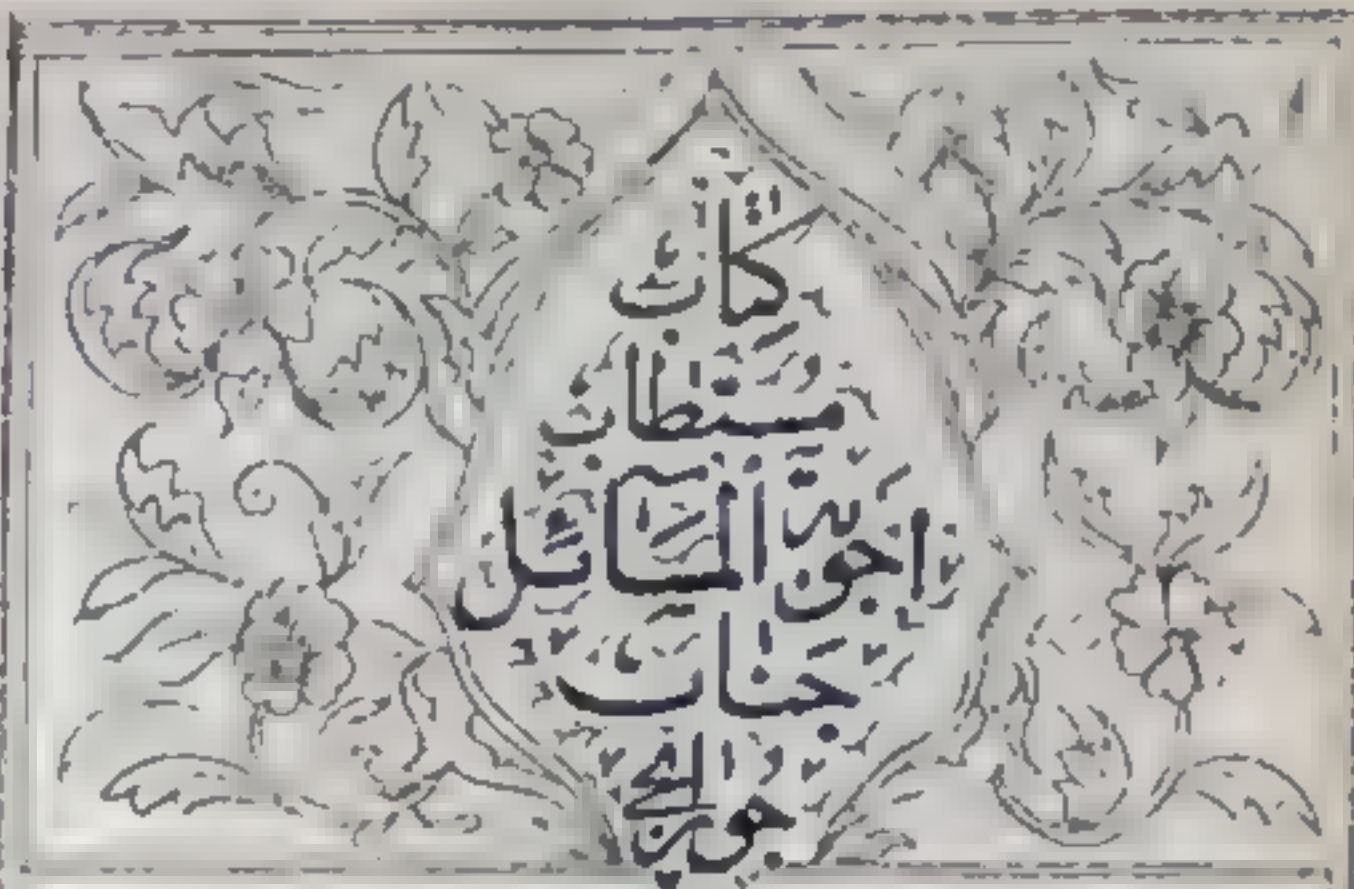 كتاب
مستطاب
اجوبة المسائل
جناب